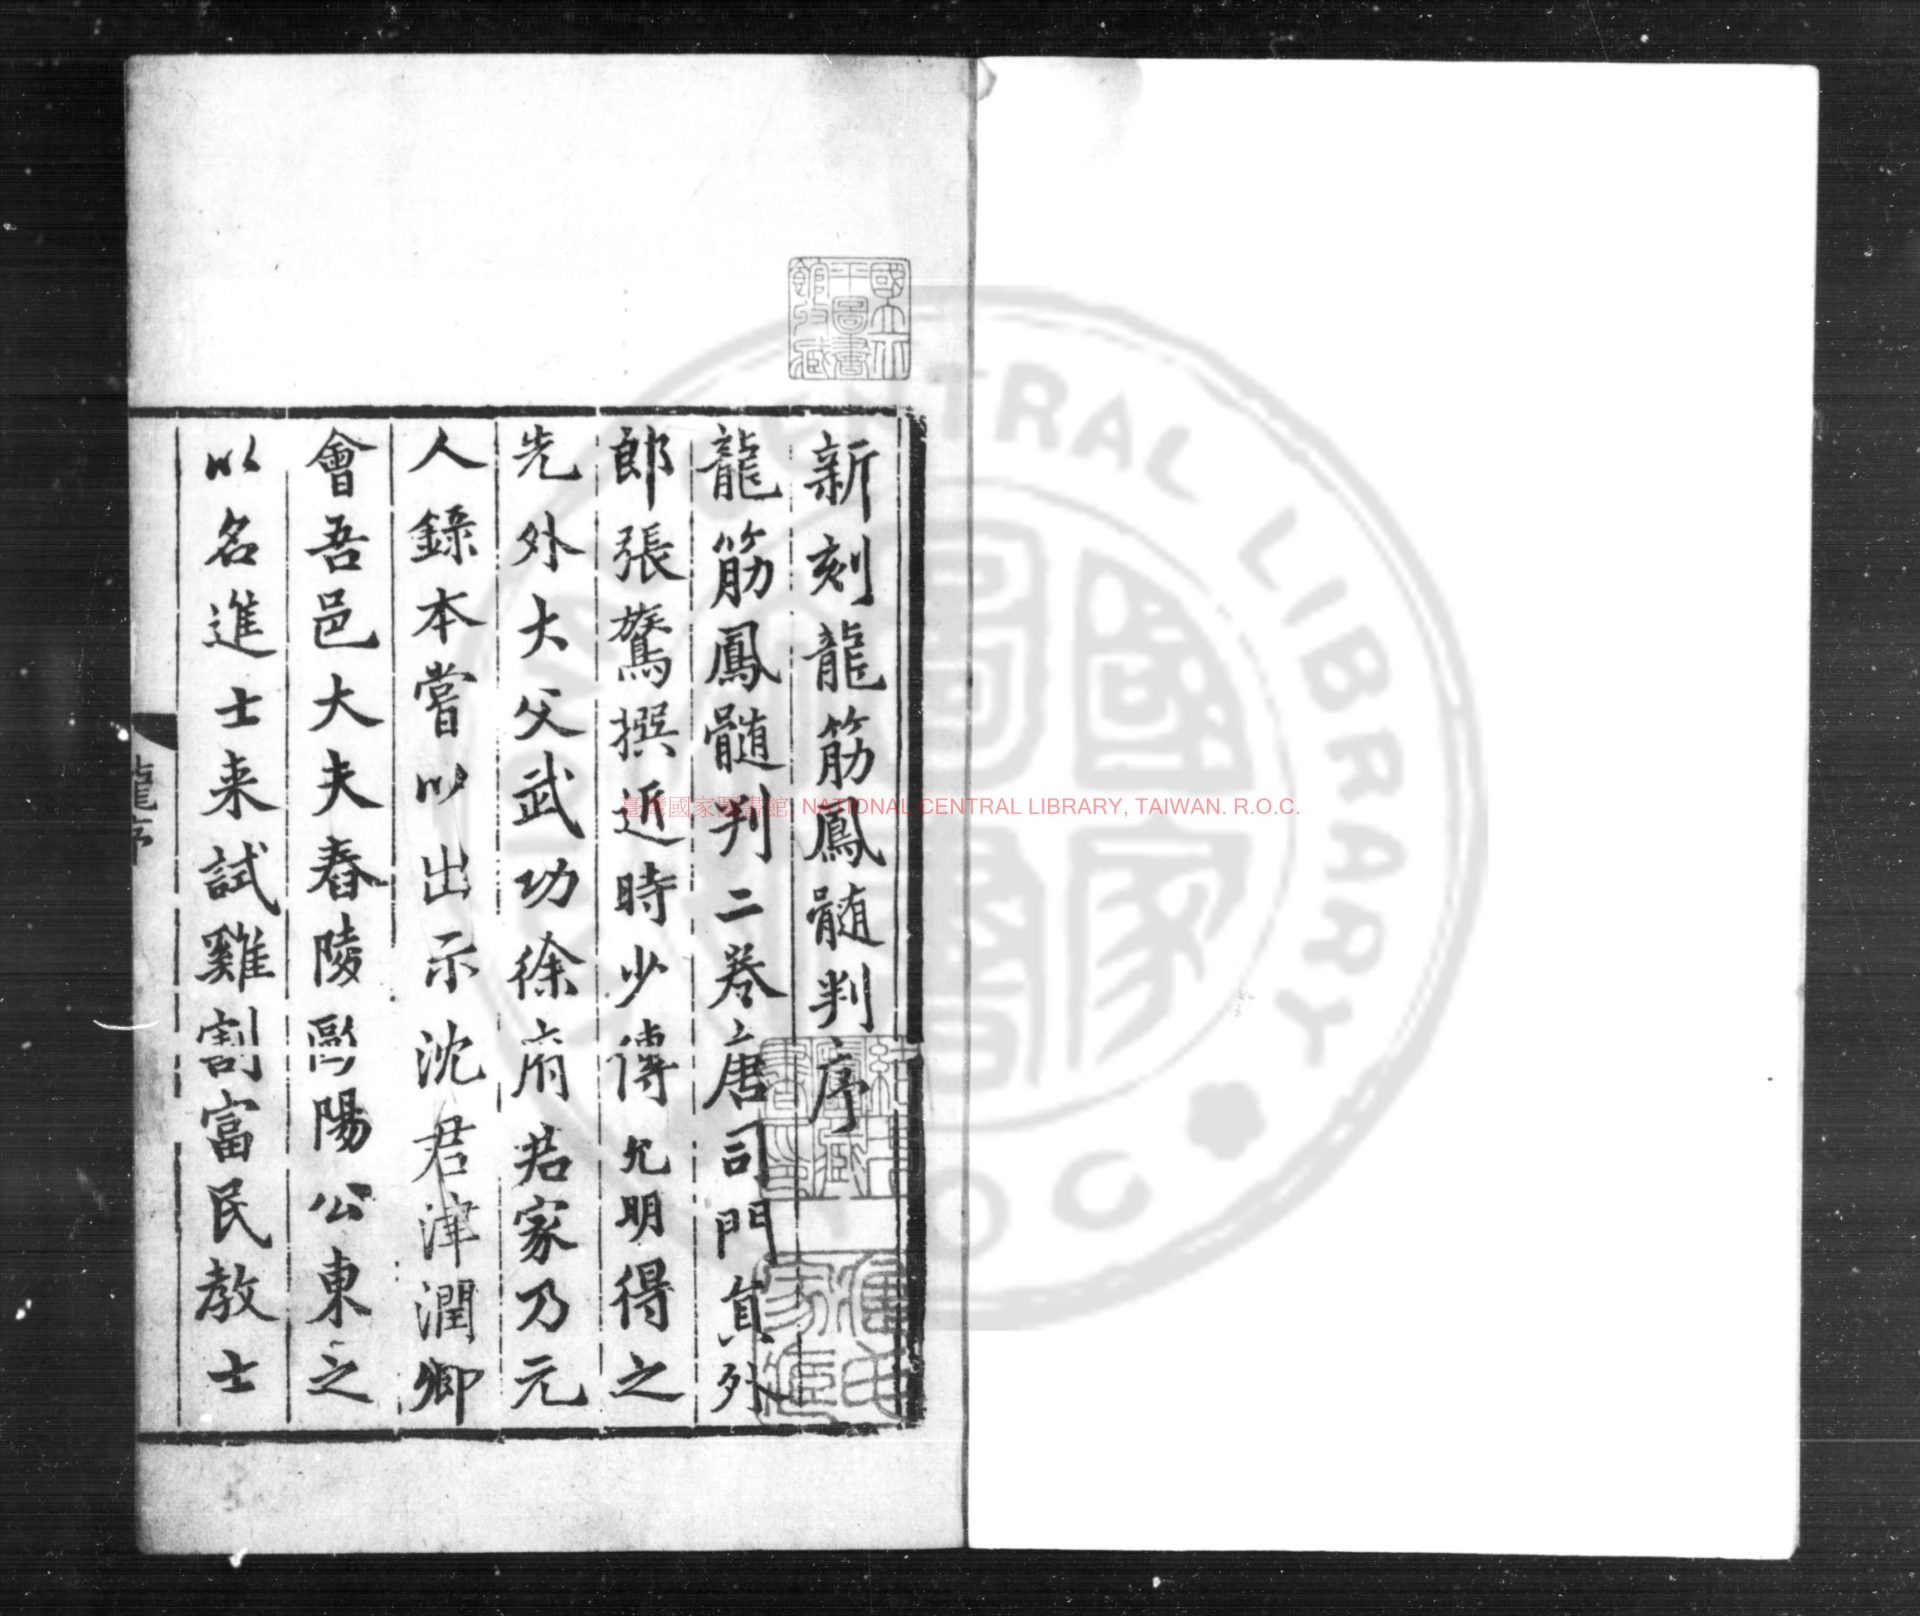 新刻龍筋鳳髓判序
龍筋鳳髓判二卷唐司門員外
郎張鷟撰近時少傳允明得之
先外大父武功徐府君家乃元
人錄本嘗以出示沈君津潤卿
會吾邑大夫舂陵歐陽公東之
以名進士来試雞割富民教士
龍序
國立北平圖書館收藏
臺灣國家圖書館, NATIONAL CENTRAL LIBRARY, TAIWAN. R.O.C.
CENTRAL LIBRARY
R.O.C.
國家圖書